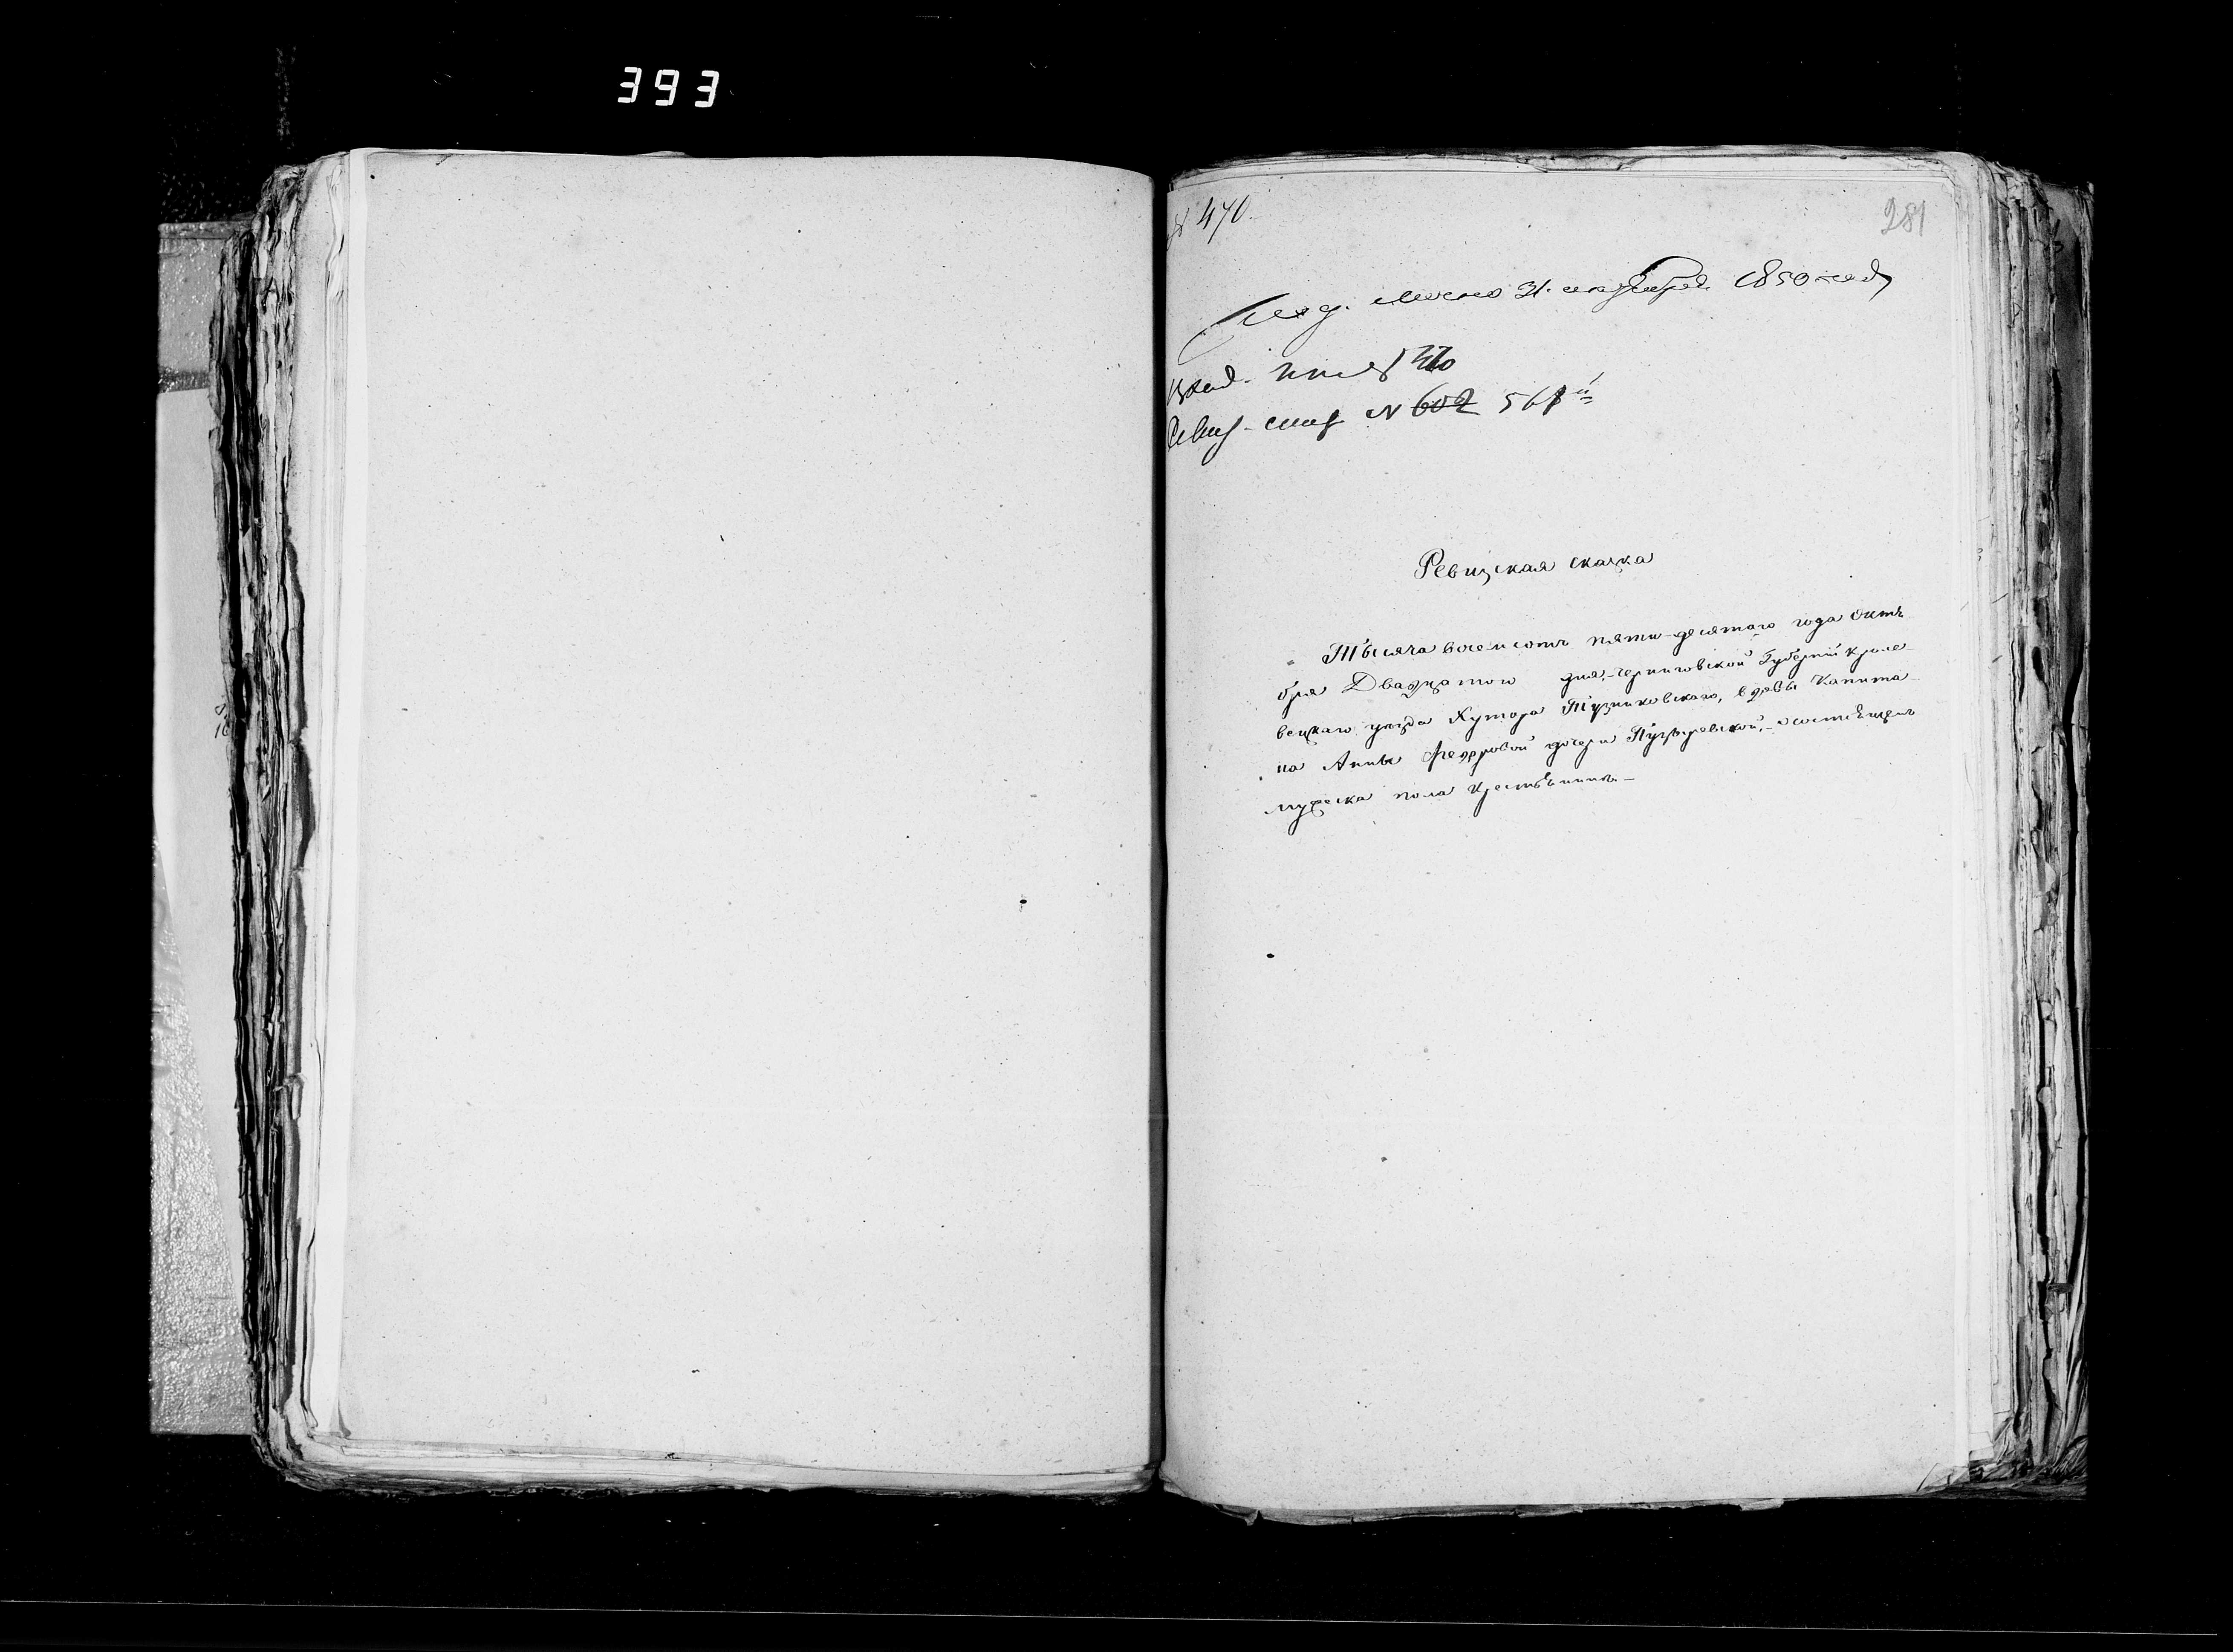 393
№ 470.
281
31. октября 1850 года
Вход. 470
№ 602 561
Ревизская сказка
Тысяча восемсотъ пяти-десятаго года Октя
бря Двадцатого дня, Черниговской Губерніи Кроле-
вецкаго уезда Хутора Тузиковскаго, вдовы Капита-
на Анны Федоровой дочери Пузыревской, о состоящихъ
мужеска пола крестьянинъ.—